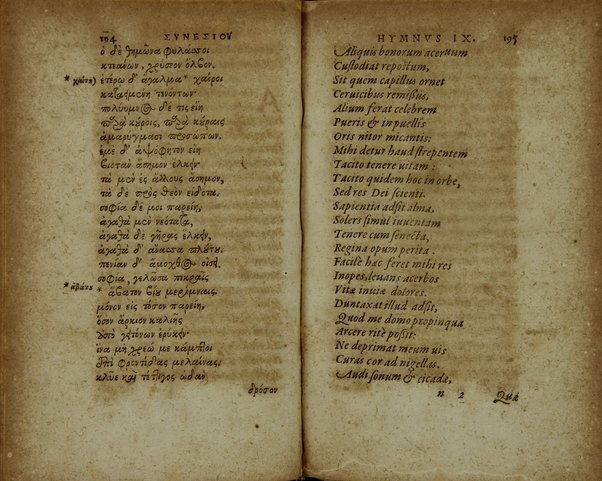 194 ΣΥΝΕΣΙΟΥ
ὁ δὲ θημῶνα φυλάσσοι
κτεάνων, χρύσεον ὄλβον.
* χαίτη) ἑτέρῳ δ' ἄγαλμα * χαίροι
καταημένη τενόντων·
πολύυμνος δέ τις εἴη
παρὰ κύροις, παρὰ κύραις
ἀμαρύγμασι προσώπων.
ἐμὲ δ' ἀψόφητον εἴη
βιοτὰν ἄσημον ἕλκην·
τὰ μὲν εἰς ἄλλους ἄσημον,
τὰ δὲ πρὸς θεὸν εἰδότα.
σοφία δέ μοι παρείη,
ἀγαθὰ μὲν νεότατα,
ἀγαθὰ δὲ γῆρας ἕλκην,
ἀγαθὰ δ' ἄνασσα πλούτου.
πενίαν δ' ἄμοχθος οἴσει
σοφία, γελῶσα πικραῖς
* ἄβατον * ἄβατον βίου μερίμναις.
μόνον εἰς τόσον παρείη,
ὅσον ἄρκιον καλιῆς
ἀπὸ γειτόνων ἐρύκην·
ἵνα μὴ χρεώ με κάμπτοι
ἐπὶ φροντίδας μελαίνας.
κλύε καὶ τέττιγος ᾠδὰν
δρόσον
HYMNVS IX. 195
Aliquis bonorum aceruum
Custodiat repostum,
Sit quem capillus ornet
Ceruicibus remissus,
Alium ferat celebrem
Pueris & in puellis
Oris nitor micantis:
Mihi detur haud strepentem
Tacito tenere uitam:
Tacito quidem hoc in orbe,
Sed res Dei scienti.
Sapientia adsit alma,
Solers simul iuuentam
Tenere cum senecta,
Regina opum perita.
Facilè hæc feret mihi res
Inopes, leuans acerbos
Vitæ inutæ dolores.
Duntaxat illud adsit,
Quod me domo propinqua
Arcere ritè possit:
Ne deprimat meum uis
Curas cor ad nigellas.
Audi sonum & cicadæ,
n 2 Quæ